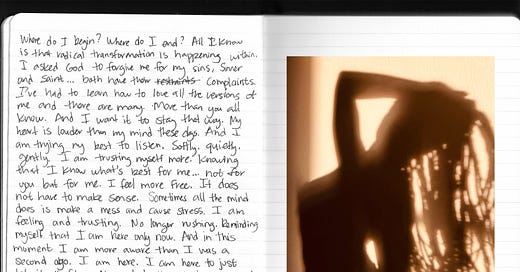 Where do I begin? Where do I end? All I know
is that radical transformation is happening within.
I asked God to forgive me for my sins, Sinner
and Saint... both have their restraints complaints.
I've had to learn how to love all the versions of
me and there are many. More than you all
know. And I want it to stay that way. My
heart is louder than my mind these days. And I
am trying my best to listen. Softly. quietly.
gently. I am trusting myself more. Knowing
that I know what's best for me... not for
you but for me. I feel more free. It does
not have to make sense. Sometimes all the mind
does is make a mess and cause stress. I am
feeling and trusting. No longer rushing. Reminding
myself that I am here only now. And in this
moment I am more aware than I was a
second ago. I am here. I can here to just